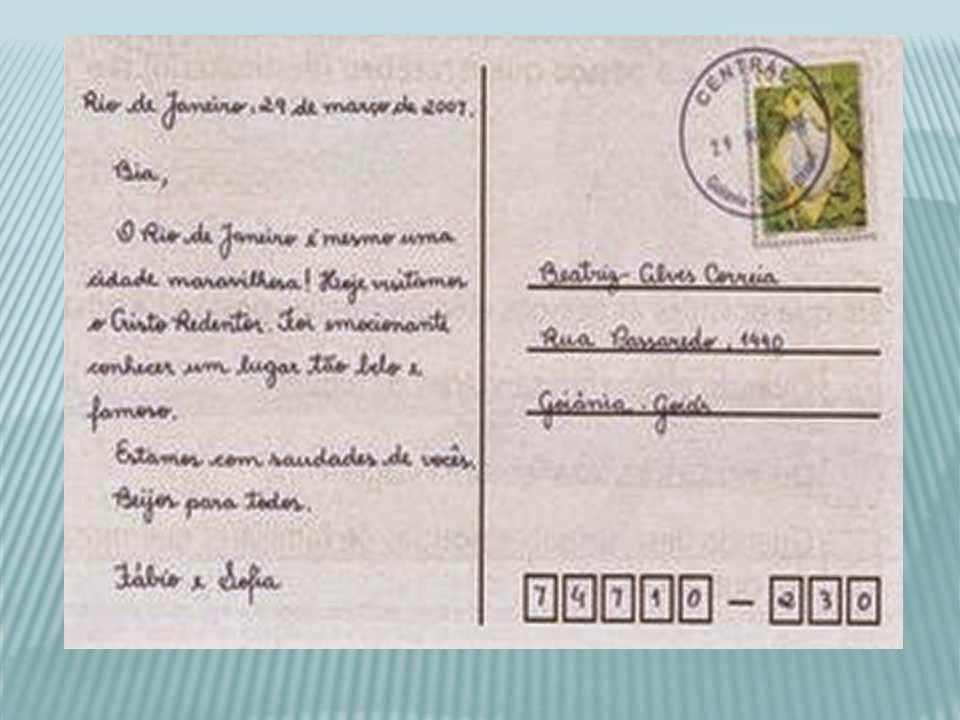 Rio de Janeiro, 29 de março de 2007.
Bia,
O Rio de Janeiro é mesmo uma
cidade maravilhosa! Hoje visitamos
o Cristo Redentor. Foi emocionante
conhecer um lugar tão belo e
famoso.
Estamos com saudades de vocês.
Beijos para todos.
Fábio e Sofia
CENTRAL
Beatriz Alves Correia
Rua Passaredo, 1490
Goiânia - Goiás
74710-230